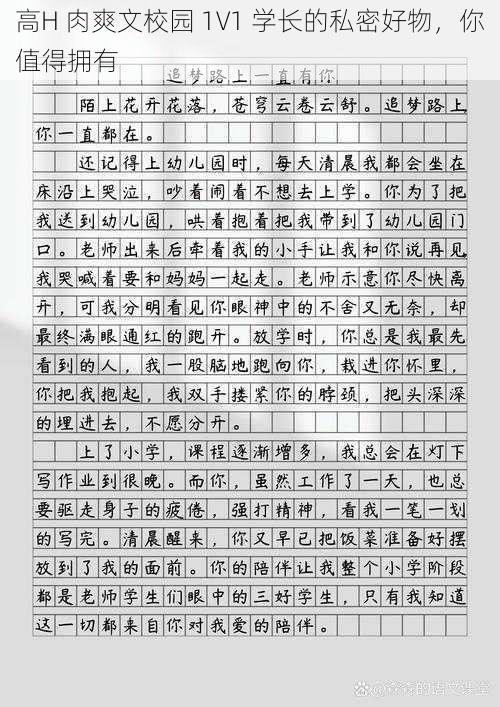 高H 肉爽文校园 1V1 学长的私密好物，你
值得拥有
追梦路上一直有你
陌上花开花落，苍穹云卷云舒。追梦路上，
你一直都在。
还记得上幼儿园时，每天清晨我都会坐在
床沿上哭泣，吵着闹着不想去上学。你为了把
我送到幼儿园，哄着抱着把我带到了幼儿园门
口。老师出来后牵着我的小手让我和你说再见，
我哭喊着要和妈妈一起走。老师示意你尽快离
开，可我分明看见你眼神中的不舍又无奈，却
最终满眼通红的跑开。放学时，你总是我最先
看到的人，我一股脑地跑向你，栽进你怀里，
你把我抱起，我双手搂紧你的脖颈，把头深深
的埋进去，不愿分开。
上了小学，课程逐渐增多，我总会在灯下
写作业到很晚。而你，虽然工作了一天，也总
要驱走身子的疲倦，强打精神，看我一笔一划
的写完。清晨醒来，你又早已把饭菜准备好摆
放到了我的面前。你的陪伴让我整个小学阶段
都是老师学生们眼中的三好学生，只有我知道
这一切都来自你对我爱的陪伴。